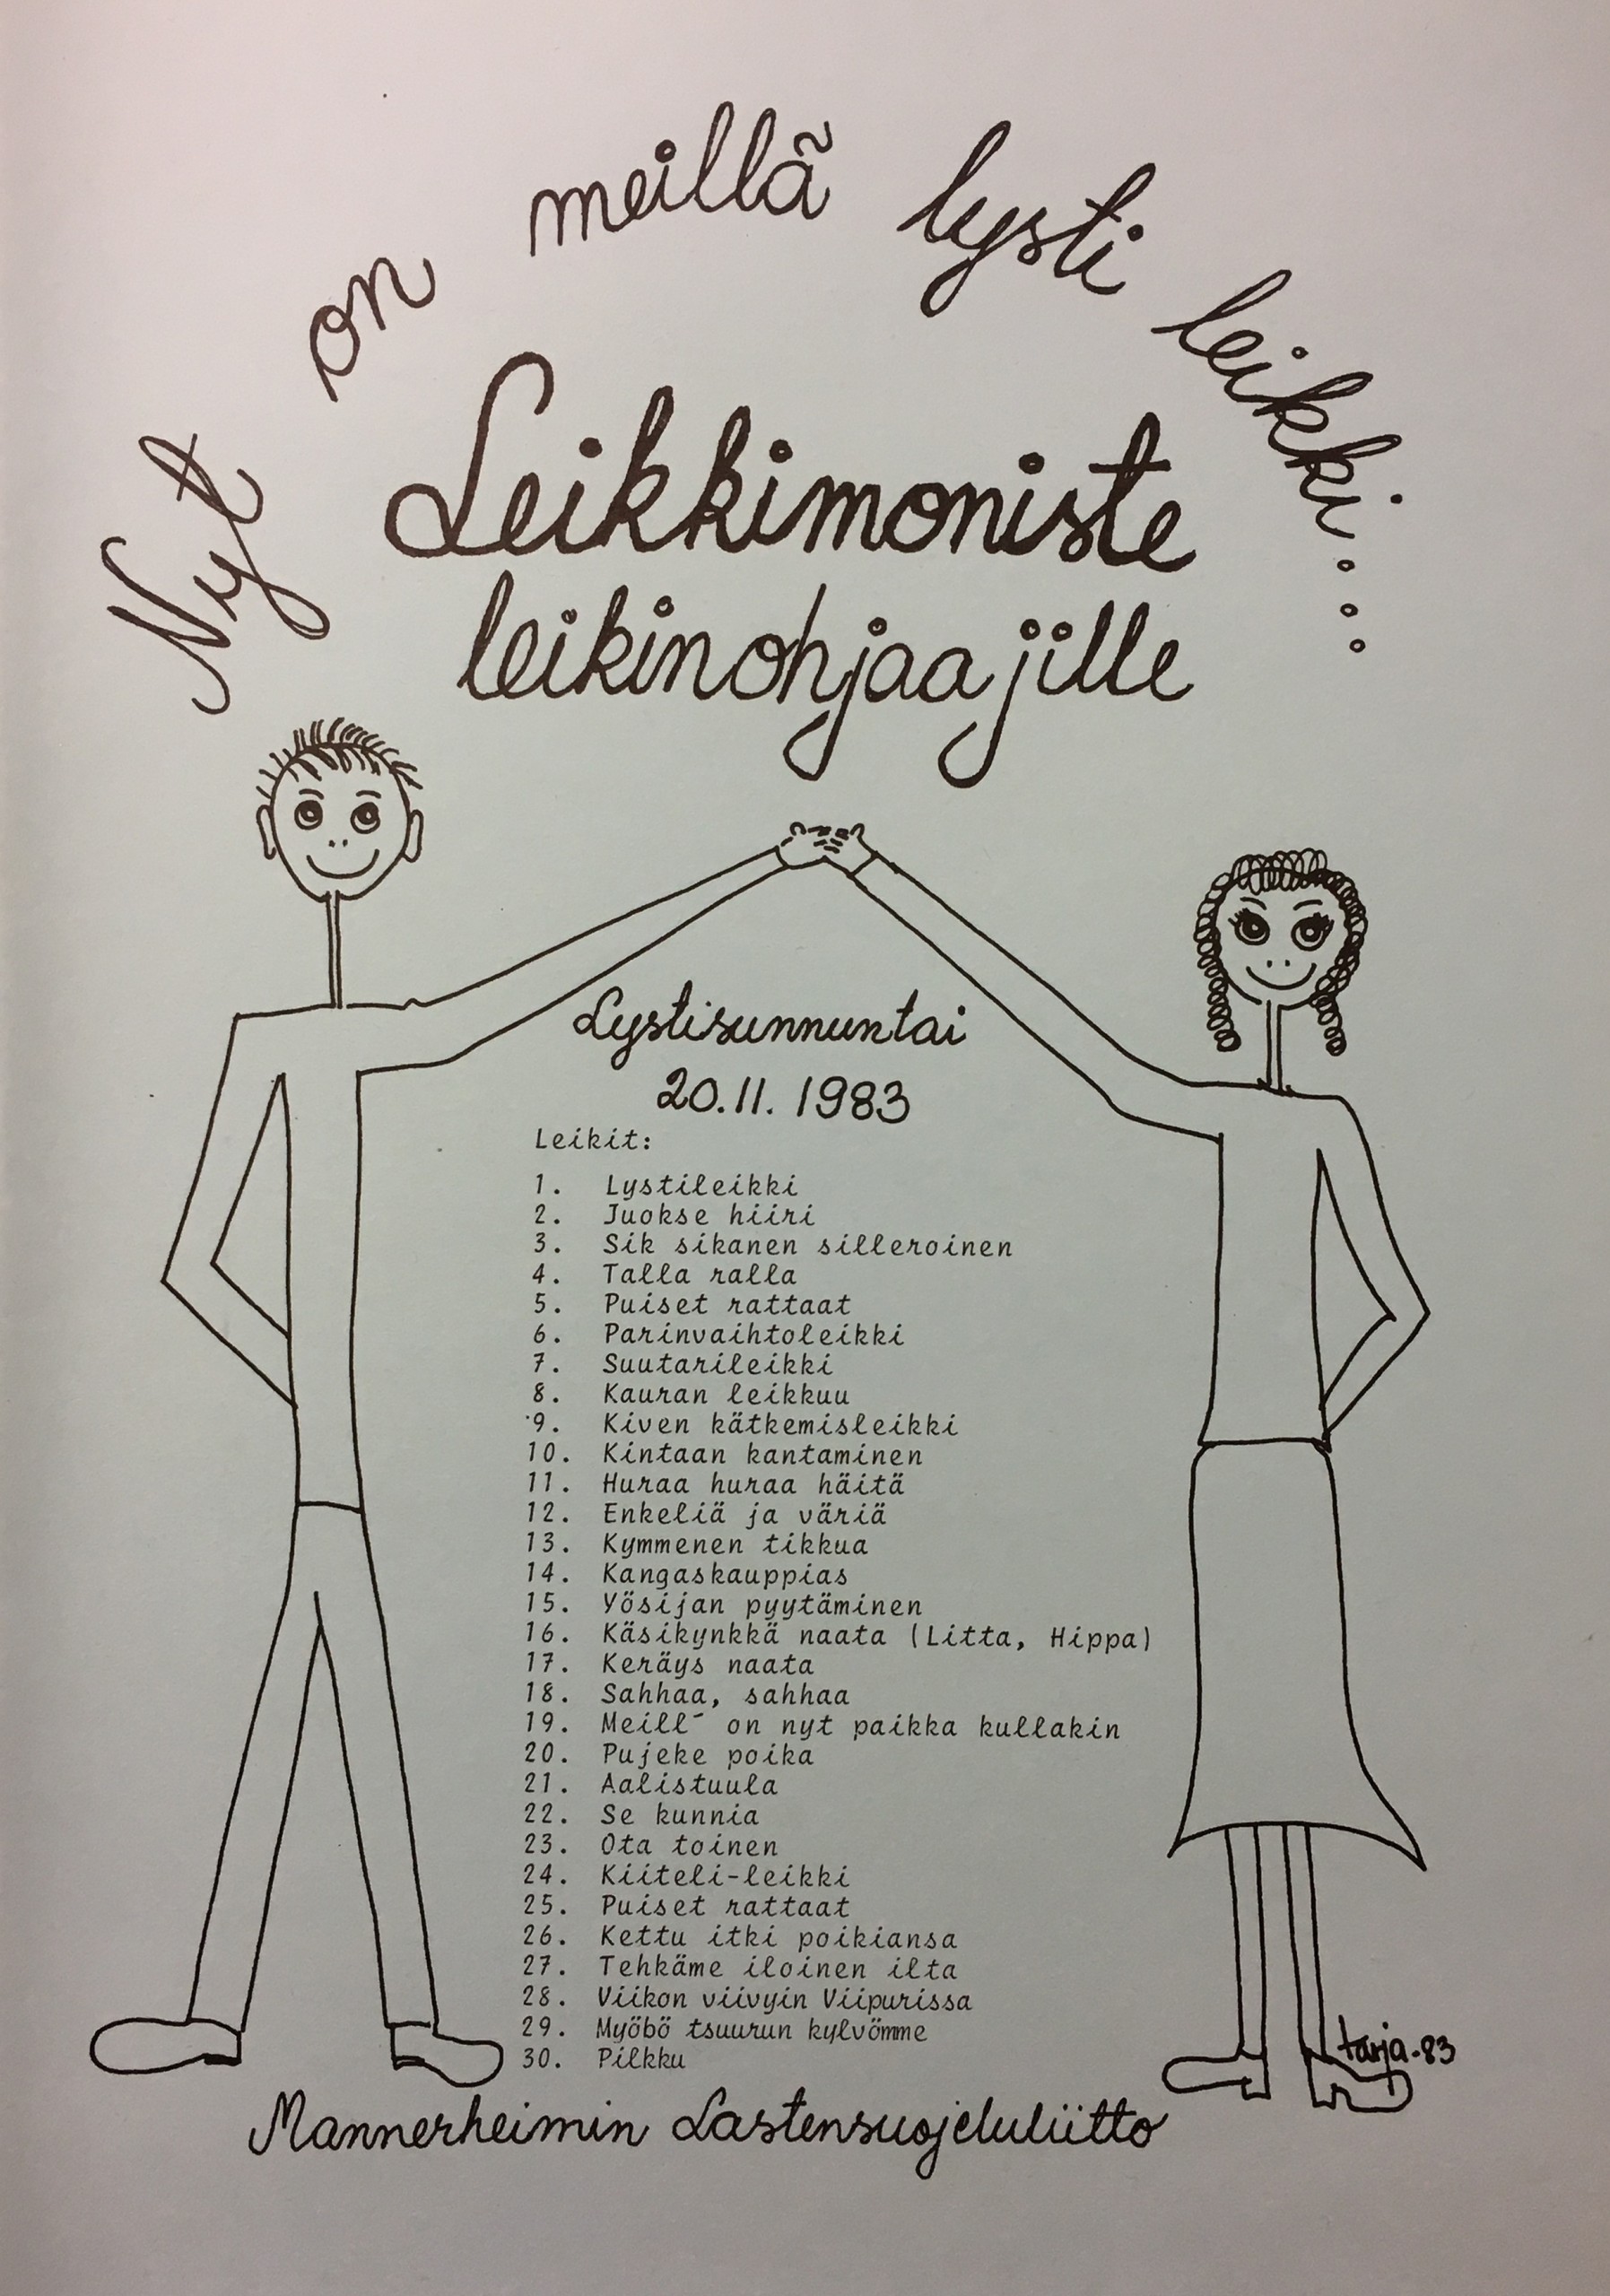 Nyt on meillä lysti leikki...
Leikkimoniste
leikinohjaajille
Lystisunnuntai
20.11.1983
Leikit:
1. Lystileikki
2. Juokse hiiri
3. Sik sikanen silleroinen
4. Talla ralla
5. Puiset rattaat
6. Parinvaihtoleikki
7. Suutarileikki
8. Kauran leikkuu
9. Kiven kätkemisleikki
10. Kintaan kantaminen
11. Huraa huraa häitä
12. Enkeliä ja väriä
13. Kymmenen tikkua
14. Kangaskauppias
15. Yösijan pyytäminen
16. Käsikynkkä naata (Litta, Hippa)
17. Keräys naata
18. Sahhaa, sahhaa
19. Meill´ on nyt paikka kullakin
20. Pujeke poika
21. Aalistuula
22. Se kunnia
23. Ota toinen
24. Kiiteli-leikki
25. Puiset rattaat
26. Kettu itki poikiansa
27. Tehkäme iloinen ilta
28. Viikon viivyin Viipurissa
29. Myöbö tsuurun kylvömme
30. Pilkku
tarja-83
Mannerheimin Lastensuojeluliitto